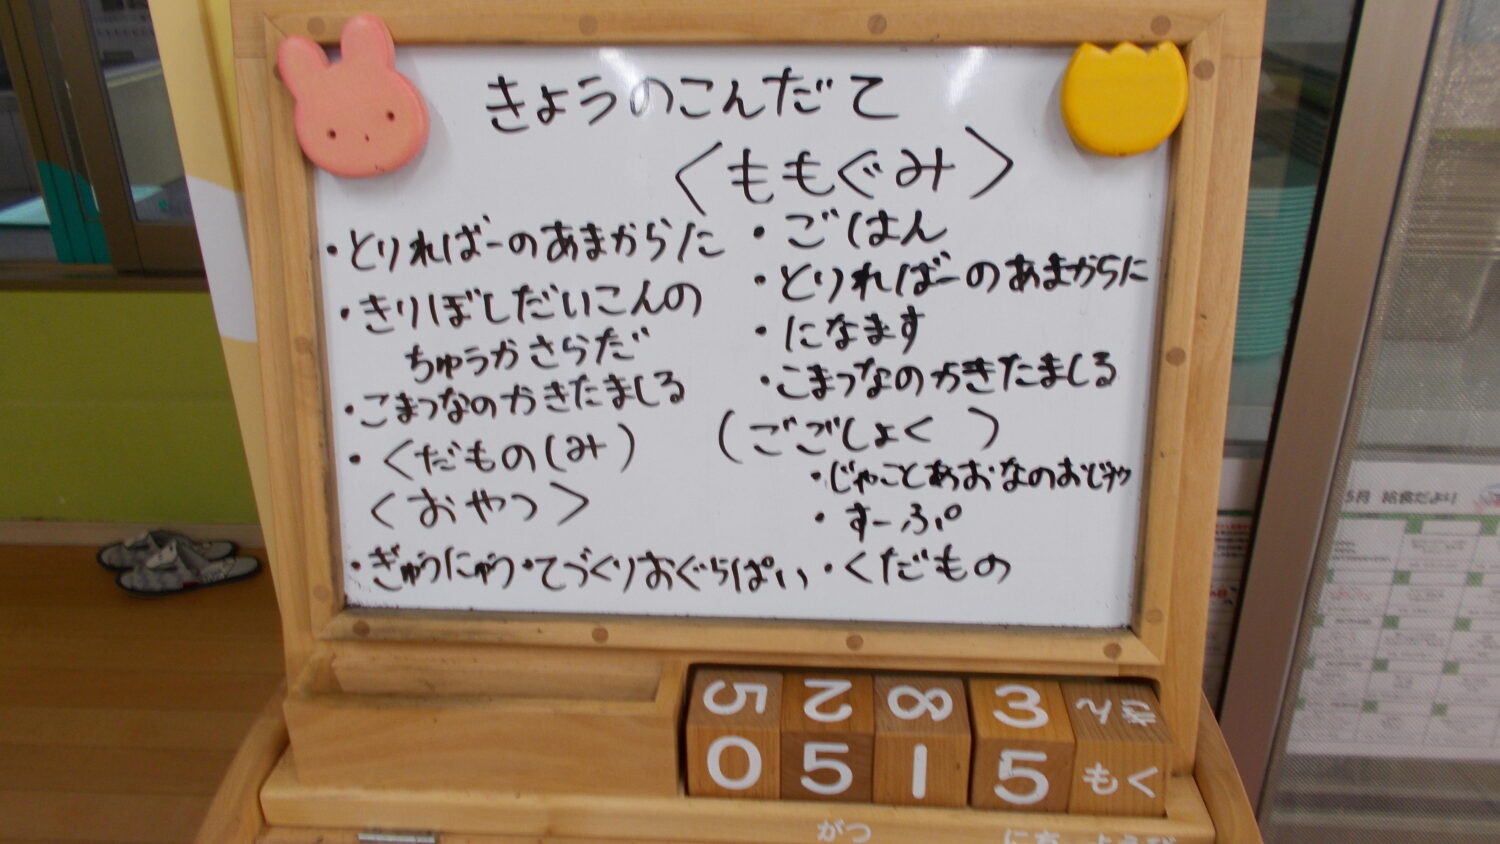 きょうのこんだて
・とりればーのあまからに
・きりぼしだいこんの
ちゅうかさらだ
・こまつなのかきたまじる
・くだもの(み)
<おやつ>
・ぎゅうにゅう・てづくりおぐらぱい・くだもの
<ももぐみ>
・ごはん
・とりればーのあまからに
・になます
・こまつなのかきたまじる
(ごごしょく)
・じゃことあおなのおじや
・すーぷ
5 2 8 3 きん
0 5 1 5 もく
がつ にち ようび
5月 給食だより